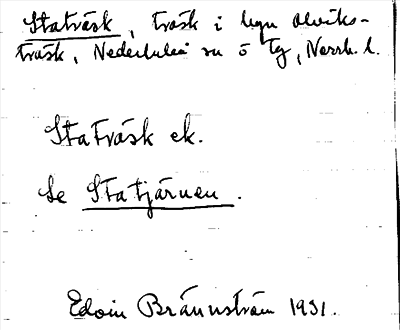 Staträsk, träsk i byn Alviks-
träsk, Nederluleå sn ö Tg, Norrb. l.
Staträsk ek.
Se Statjärnen.
Edvin Brännström 1931.